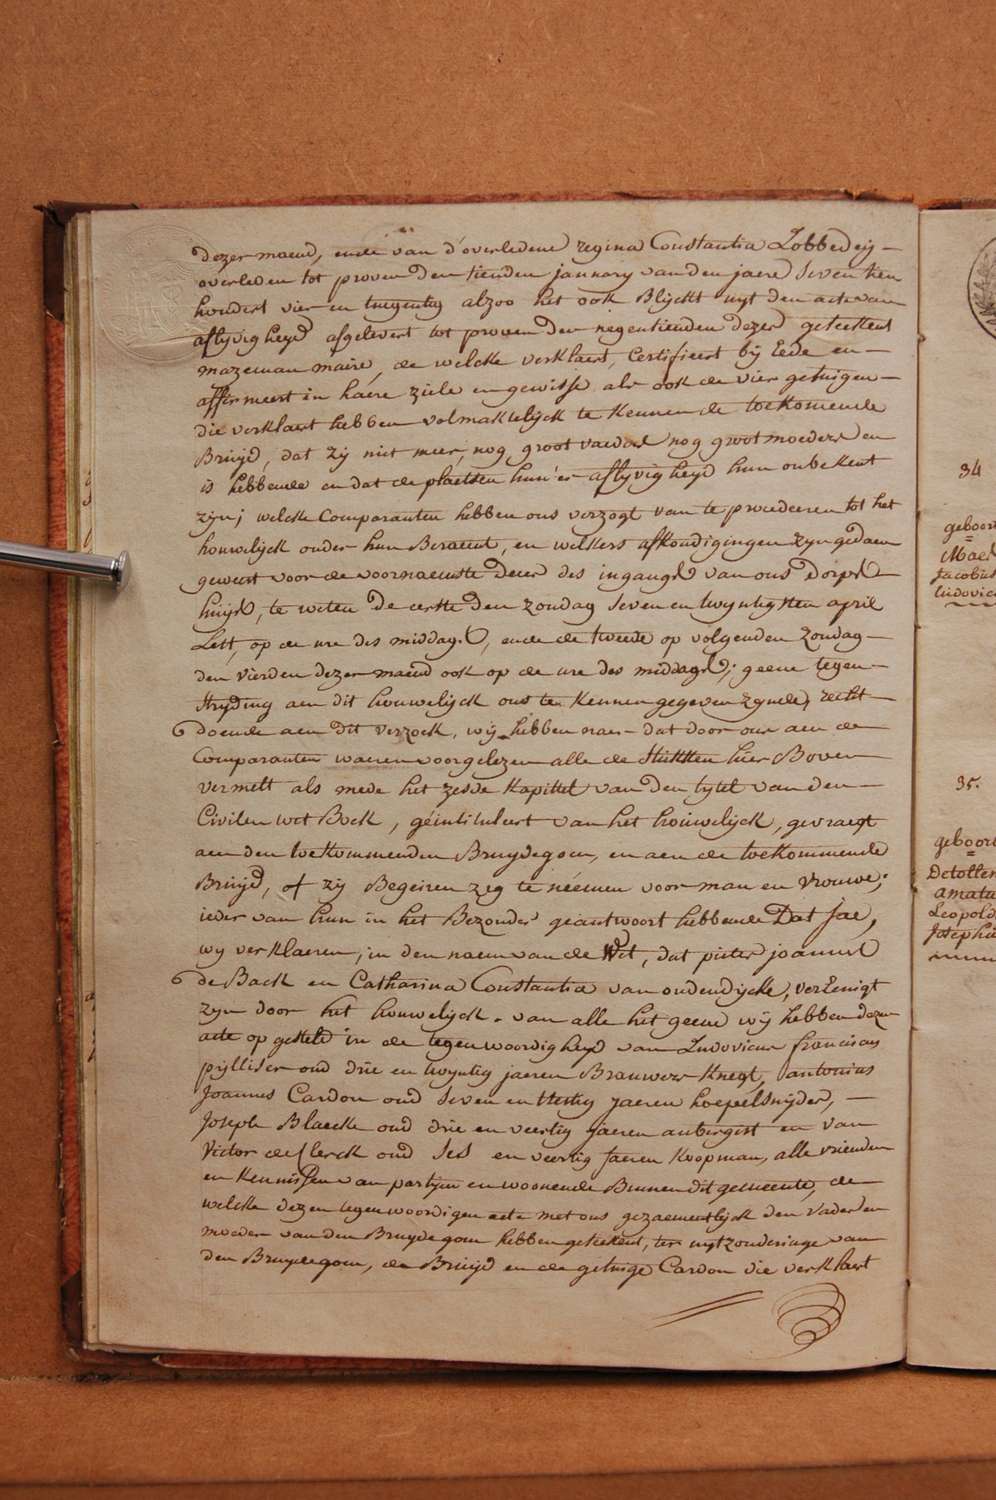 dezer maend, ende van d'overledene regina Constantia Lobbedeij -
overleden tot proven den tienden january van den jaere seven tien
hondert vier en tngentig alzoo het ook Blijckt uyt den acte van
aflyvigheyd afgelevert tot proven den negentienden dezer geteekent
mazeman maire, de welcke verklaert, Certifieert bij Eede en -
affirmeert in haere ziele en gewisse als ook de vier getuigen -
die verklaert hebben volmaktelijck te kennen de toekomende
Bruijd, dat zij niet meer, nog groot vaeders nog groot moeders en
is hebbende en dat de plaetsen hun'er aflyvigheyd hun onbekent
zyn; welcke Comparanten hebben ons verzogt van te proedeeren tot het
houwelijck onder hun Beraemt, en welkers afkondigingen zyn gedaen
geweest voor de voornaemste deure des ingangs van ons dorps
huijs, te weten de eerste den zondag seven en twyntigsten april
Lest, op de ure des middags, ende de tweede op volgenden zondag -
den vierden dezer maend ook op de ure des middags; geene tegen -
stryding aen dit houwelijck ons te kennen gegeven zynde, recht -
doende aen dit verzoek, wij hebben naer - dat door ons aen de
Comparanten waeren voorgelezen alle de stukken hier Boven
vermelt als mede het zesde kapittel van den tytel van den -
Civilen wet Boek, geïntituleert van het houwelijck, gevraegt
aen den toekommenden Bruydegom, en aen de toekommende
Bruijd, of zij Begeiren zeg te néemen voor man en vrouwe;
ieder van hun in het Bezonder geantwoort hebbende Dat Jae,
wy verklaeren, in den naem van de Wet, dat pieter joannes
de Back en Catharina Constantia van oudendijcke, verEenigt
zyn door het houwelijck. van alle het geene wij hebben dezen
acte op gesteld in de tegenwoordigheyd van Ludovicus franciscus
pijlliser oud drie en twyntig jaeren Brauwers knegt, antonius
Joannes Cardon oud seven en dertig jaeren hoepelsnijder, -
Joseph Blaecke oud drie en veertig jaeren aubergist en van
Victor de Clerck oud ses en veertig Jaeren koopman, alle vrienden
en kennissen van partijen en woonende Binnen dit gemeente, de
welcke dezen tegenwoordigen acte met ons gezaementlijck den vader en
moeder van den Bruydegom hebben geteekent, ter uytzonderinge van
den Bruydegom, de Bruijd en de getuige Cardon die verklaert
34
geboort
Jacobus
Ludovic
35.
geboort
amatu
Leopold
Josephu